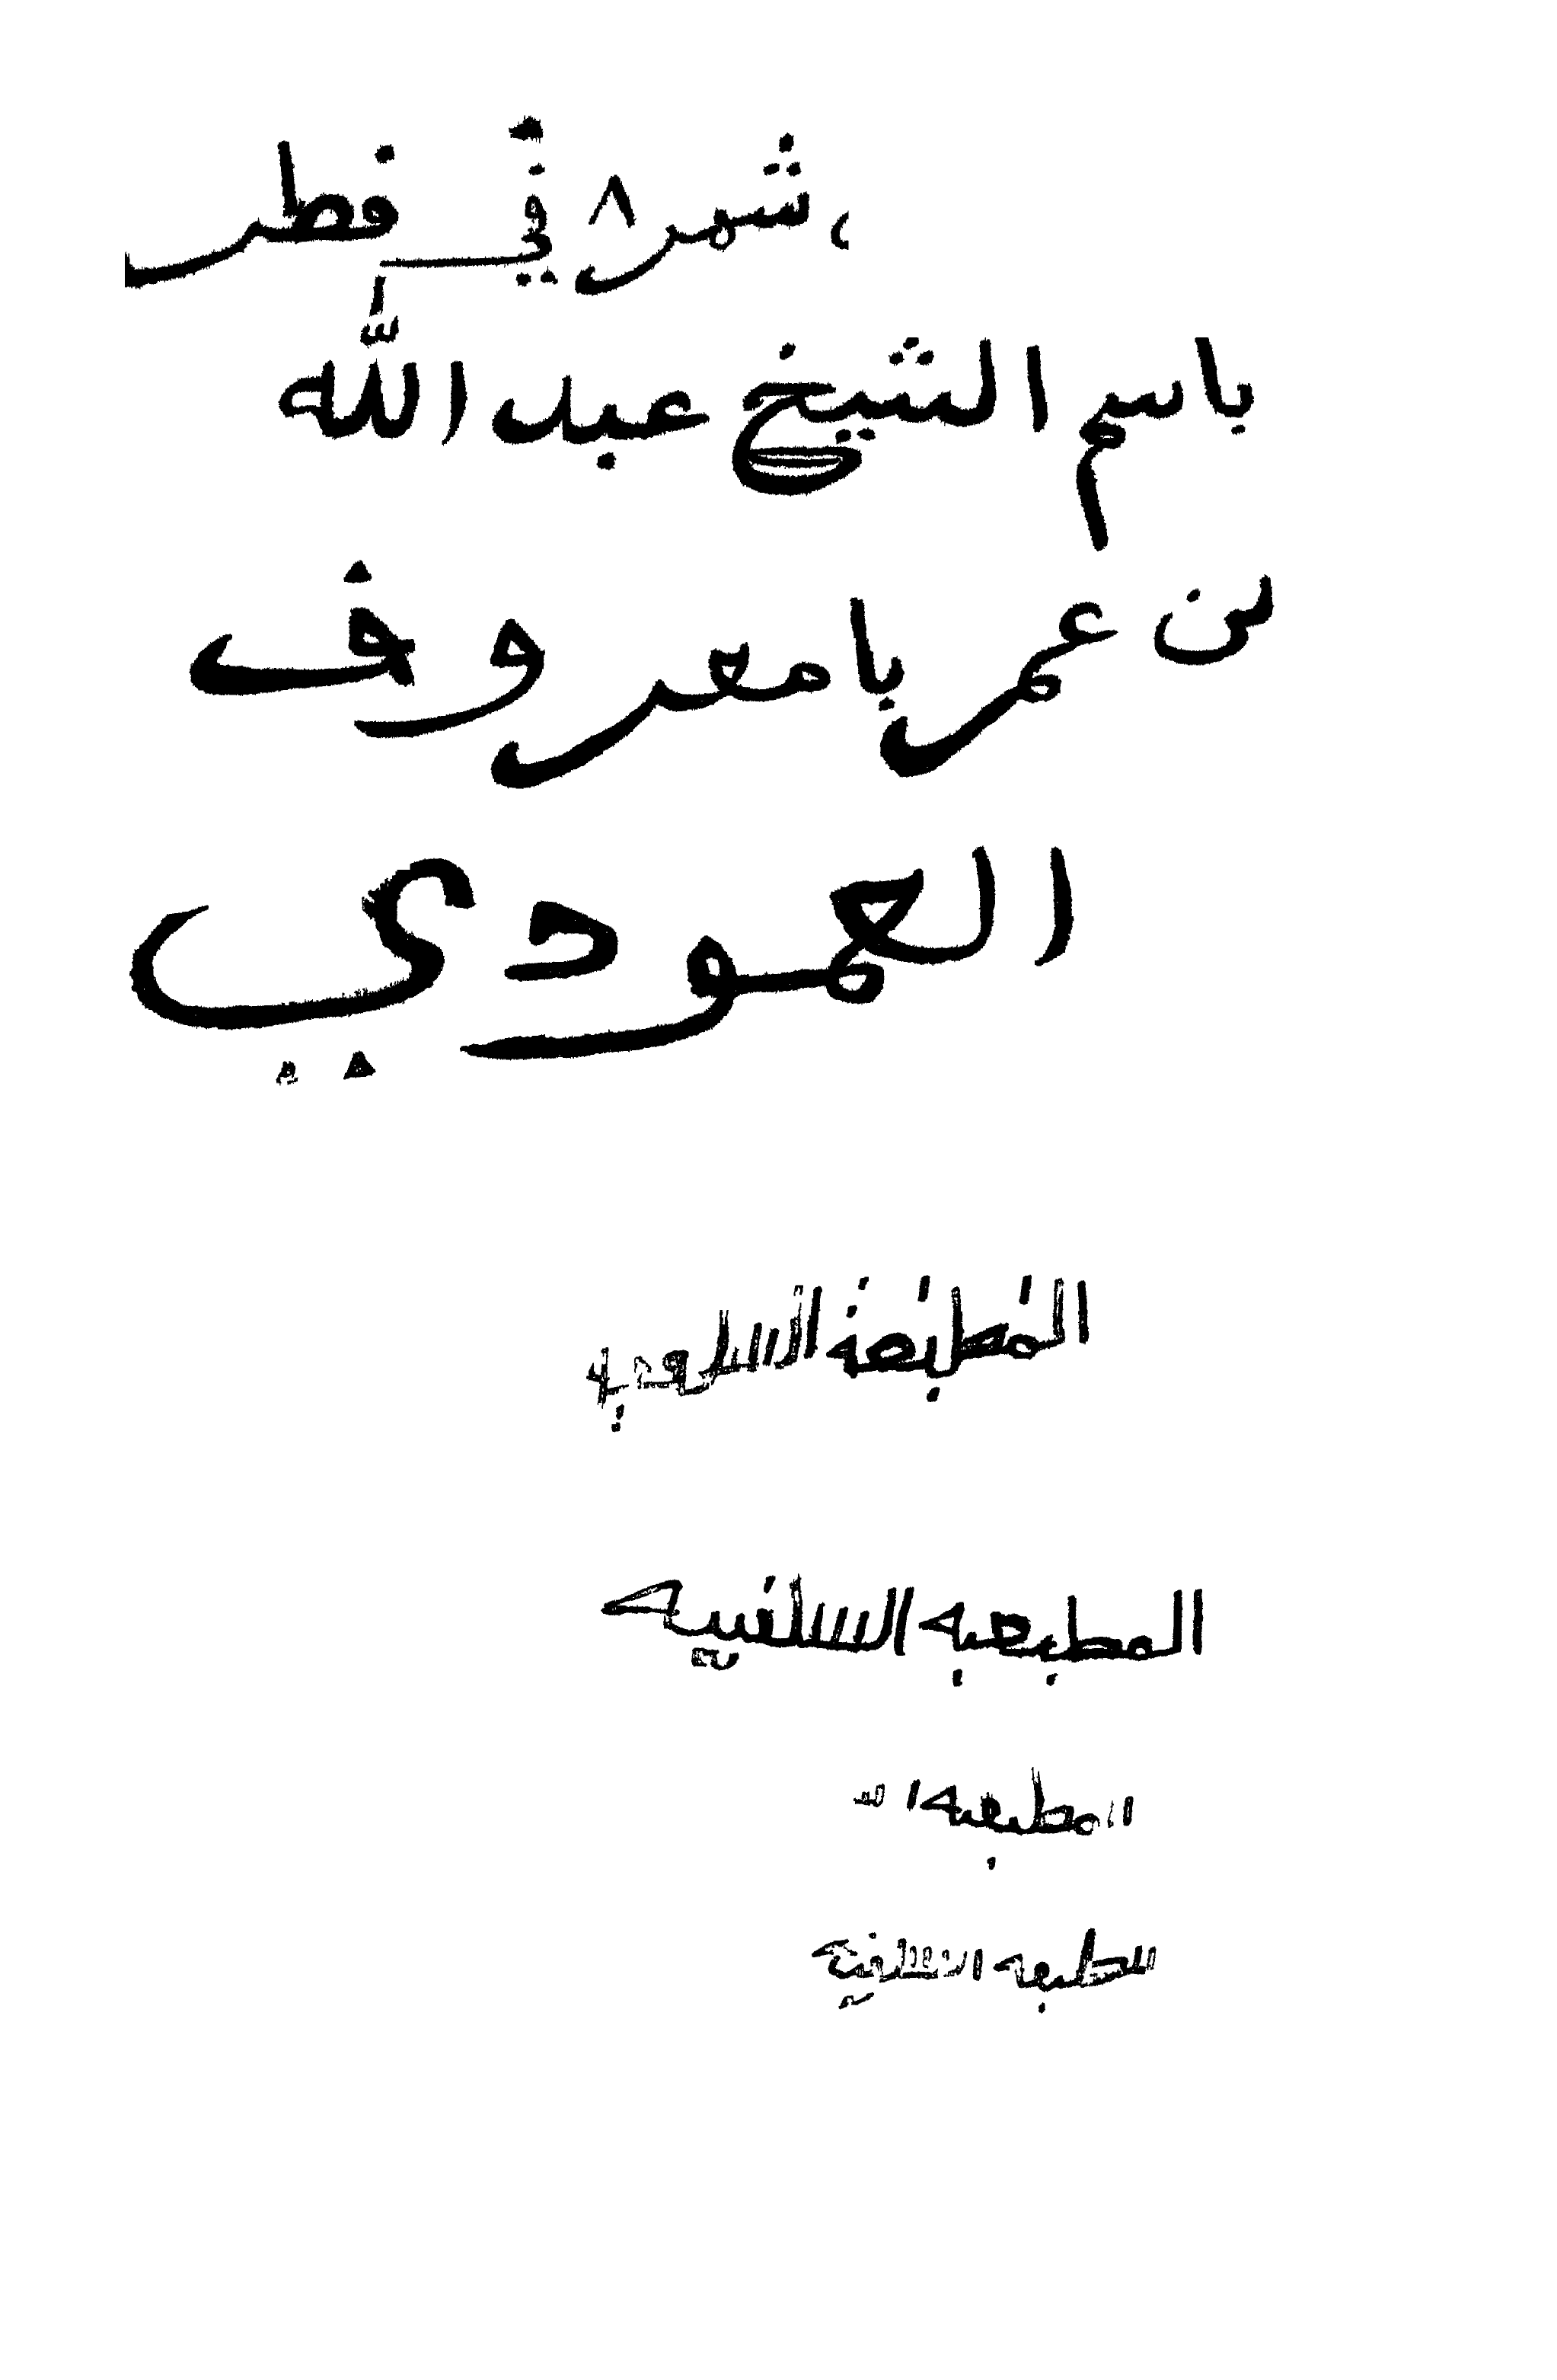 ، شهر ٨ في فطر
باسم الشيخ عبد الله
بن عمر بامعروف
العمودي
المطبعة
المطبعه السلفيه
المطبعه
المطبعه السلفيه